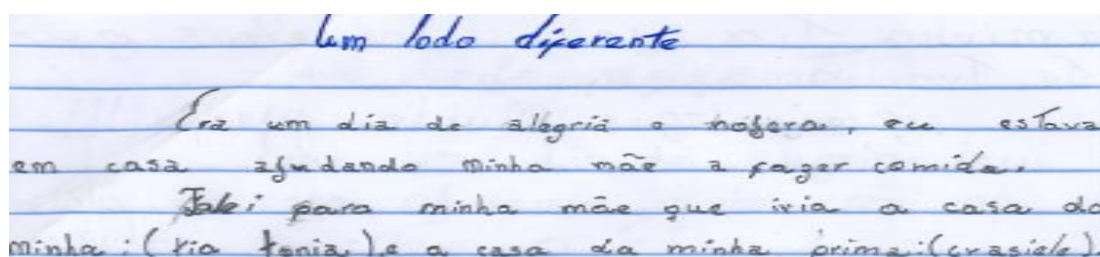 Um lodo diferente
Era um dia de alegria e, eu estava
em casa ajudando minha mãe a fazer comida.
Falei para minha mãe que iria a casa da
minha:(tia tonia).e a casa da minha prima:(crasiele).